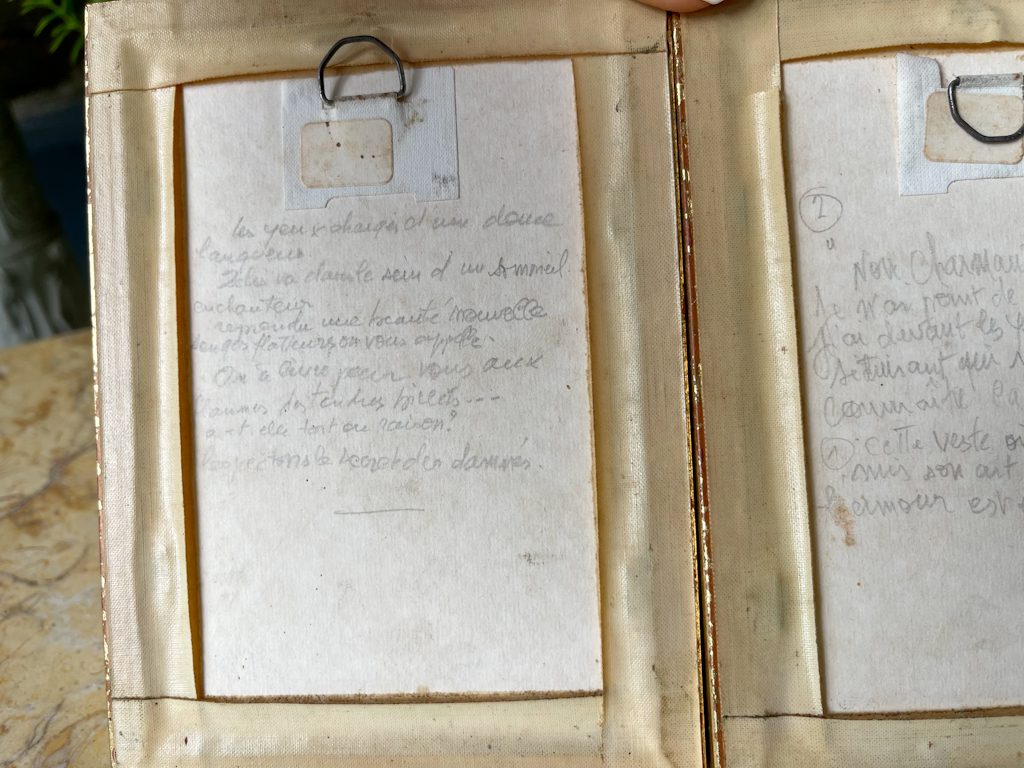 les yeux chargés d'une douce
langueur
va dans le sein d'un sommeil
enchanteur
reprendre une beauté nouvelle
songes flatteurs on vous appelle.
On a pour vous aux
tendres billets ---
a-t-elle tort ou raison?
Respectons le secret des dames.
2
"
Non, Charmant
Je n'ai point de
J'ai devant les y
séduisant qui
connaître l'a
1 cette veste où
mis son art
l'amour est